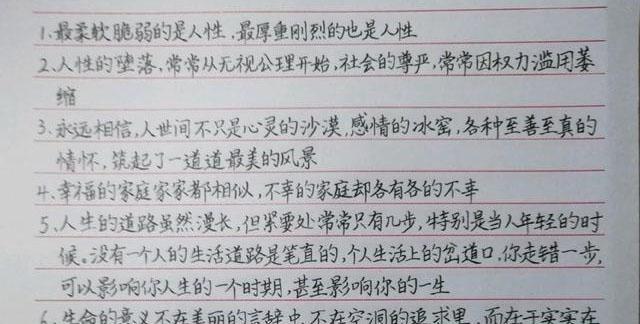 1.最柔软脆弱的是人性,最厚重刚烈的也是人性
2.人性的堕落,常常从无视公理开始,社会的尊严,常常因权力滥用萎
缩
3.永远相信,人世间不只是心灵的沙漠,感情的冰窑,各种至善至真的
情怀,筑起了一道道最美的风景
4.幸福的家庭家家都相似,不幸的家庭却各有各的不幸
5.人生的道路虽然漫长,但紧要处常常只有几步,特别是当人年轻的时
候。没有一个人的生活道路是笔直的,个人生活上的岔道口,你走错一步,
可以影响你人生的一个时期,甚至影响你的一生
6.生命的意义不在美丽的言辞中,不在空洞的追求里,而在于实实在